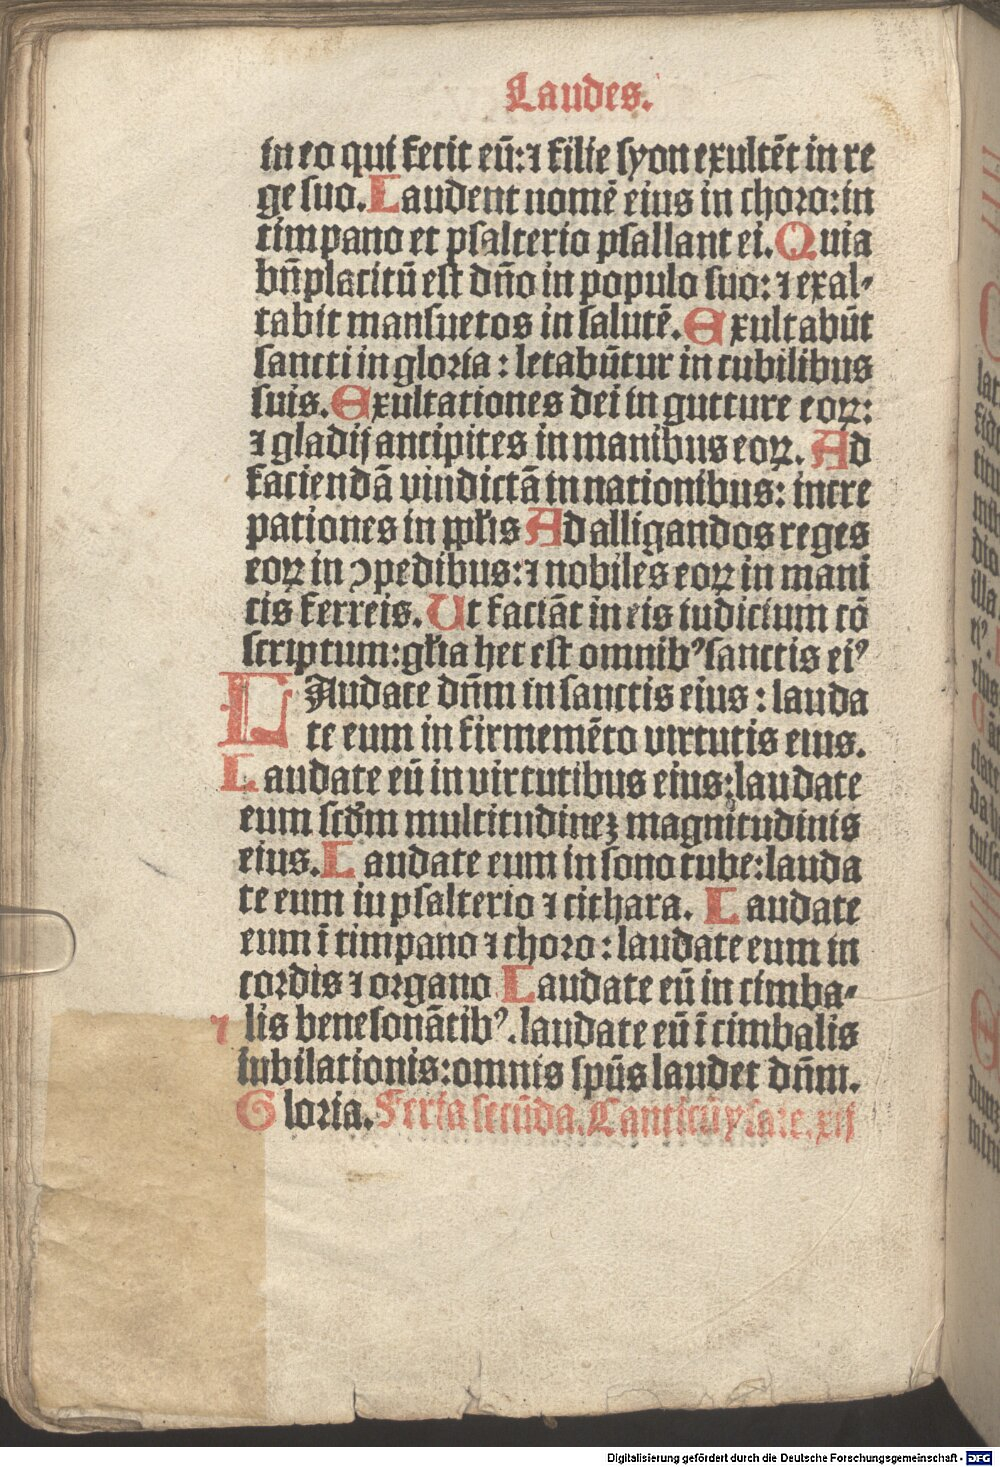 Laudes.
in eo qui fecit eū: ⁊ filie syon exultēt in re
ge suo. Laudent nomē eius in choro: in
timpano et psalterio psallant ei. Quia
bn̄placitū est dn̄o in populo suo: ⁊ exal-
tabit mansuetos in salutē. Exultabūt
sancti in gloria: letabūtur in cubilibus
suis. Exultationes dei in gutture eoꝝ:
⁊ gladij ancipites in manibus eoꝝ. Ad
faciendā vindictā in nationibus: incre
pationes in ppl̄is Ad alligandos reges
eoꝝ in ↄpedibus: ⁊ nobiles eoꝝ in mani
cis ferreis. Ut faciāt in eis iudicium cō
scriptum: gl̄ia hec est omnibꝰ sanctis eiꝰ
LAudate dn̄m in sanctis eius: lauda
te eum in firmemēto virtutis eius.
Laudate eū in virtutibus eius: laudate
eum scd̄m multitudineꝫ magnitudinis
eius. Laudate eum in sono tube: lauda
te eum iu psalterio ⁊ cithara. Laudate
eum ī timpano ⁊ choro: laudate eum in
cordis ⁊ organo Laudate eū in cimba-
lis benesonātibꝰ. laudate eū ī cimbalis
iubilationis: omnis sp̄us laudet dn̄m.
Gloria. Feria secūda. Canticū ysaie. xij
Digitalisierung gefördert durch die Deutsche Forschungsgemeinschaft - DFG